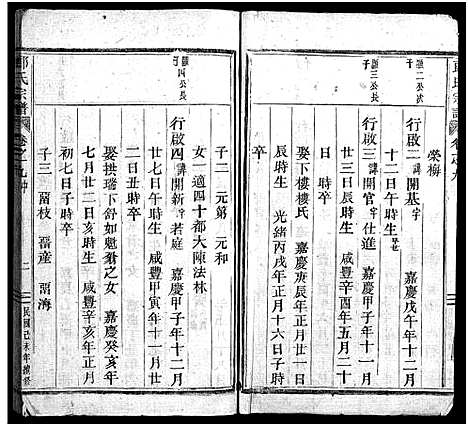 榮梅
行啟二諱開基字 嘉慶戊午年十二月
十二日午時生 卒
行啟三諱開官字仕進 嘉慶甲子年十一月
三日辰時生 咸豐辛酉年五月
日 時卒
娶下樓樓氏 嘉慶庚辰年正月廿一日
辰時生 光緒丙戌年正月十六日子時
卒
子二 元第 元和
女一適四十都大陳法林
行啟四諱開新字若庭 嘉慶甲子年十二月
廿七日午時生 咸豐甲寅年十一月廿
二日丑時卒
娶拱瑞下舒如魁翁之女 嘉慶癸亥年
七月廿二日亥時生 咸豐辛亥年正月
初七日子時卒
子三 啚枝 啚産 啚海
氏宗譜
卷之九
二
民國己未年續修